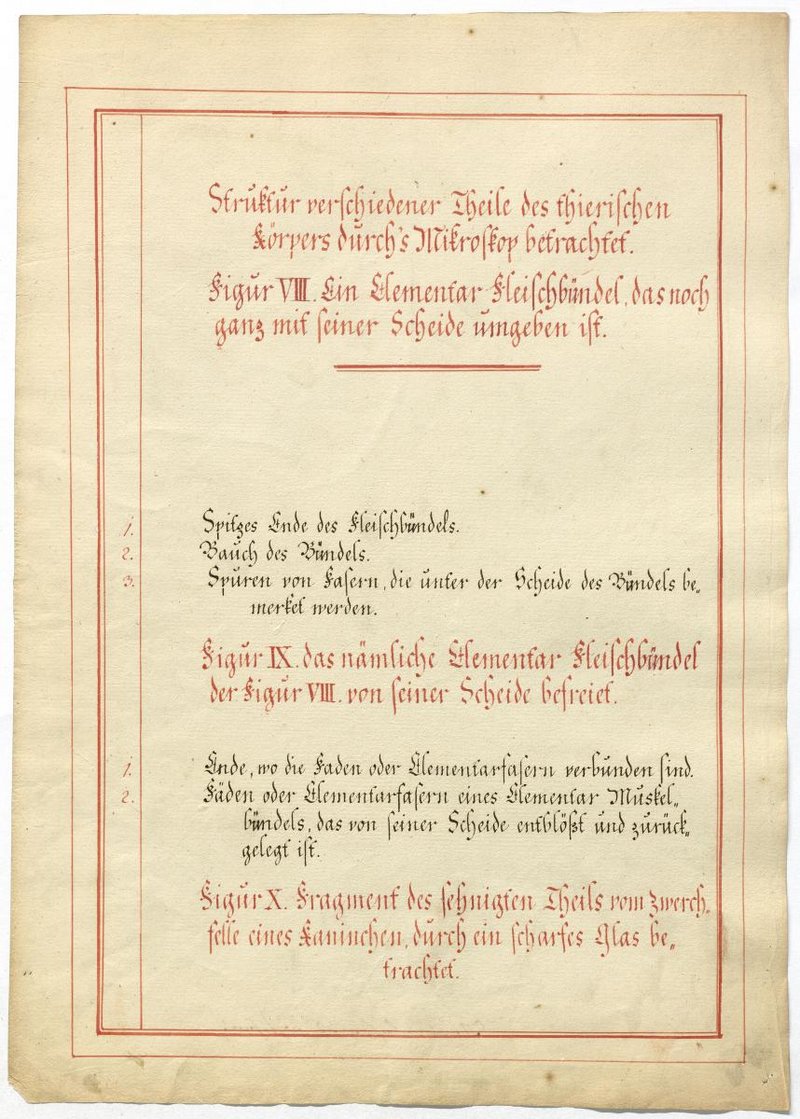 Struktur verschiedener Theile des thierischen
Körpers durch's Mikroskop betrachtet.
Figur VIII. Ein Elementar Fleischbündel, das noch
ganz mit seiner Scheide umgeben ist.
1. Spitzes Ende des Fleischbündels.
2. Bauch des Bündels.
3. Spuren von Fasern, die unter der Scheide des Bündels be„
merket werden.
Figur IX. das nämliche Elementar Fleischbündel
der Figur VIII. von seiner Scheide befreiet.
1. Ende, wo die Faden oder Elementarfasern verbunden sind.
2. Fäden oder Elementarfasern eines Elementar Muskel„
bündels, das von seiner Scheide entblößt und zurück„
gelegt ist.
Figur X. Fragment des sehnigten Theils vom Zwerch„
felle eines Kaninchen, durch ein scharfes Glas be„
trachtet.